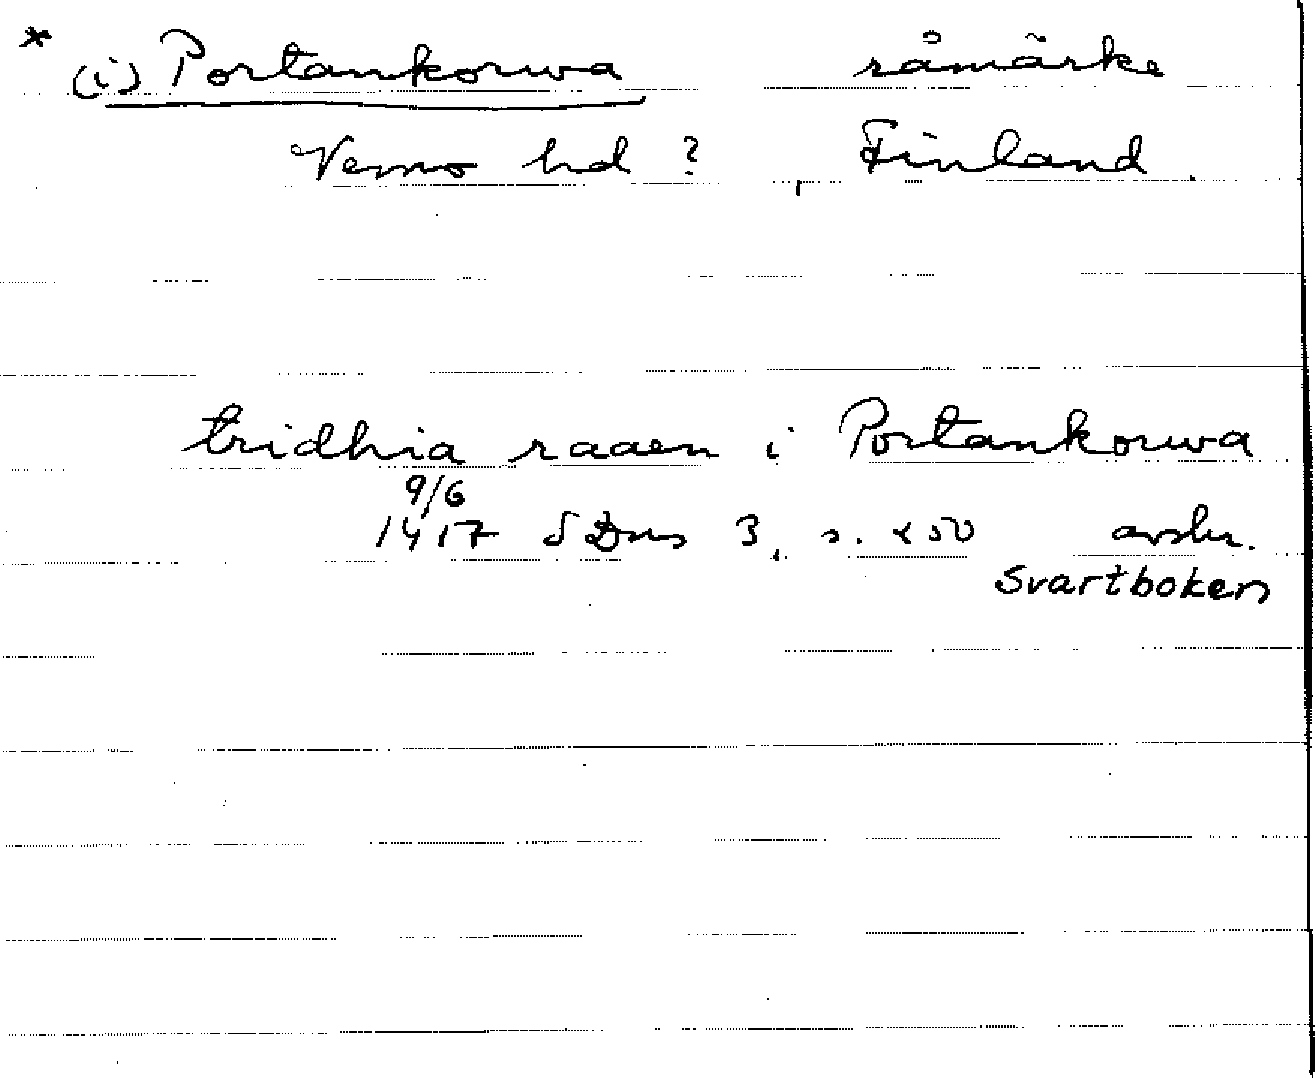 * (i) Portankorwa råmärke
Vemo hd ? Finland.
tridhia raaen i Portankorwa
9/6
1417 SDns 3, s. 250 avskr.
Svartboken